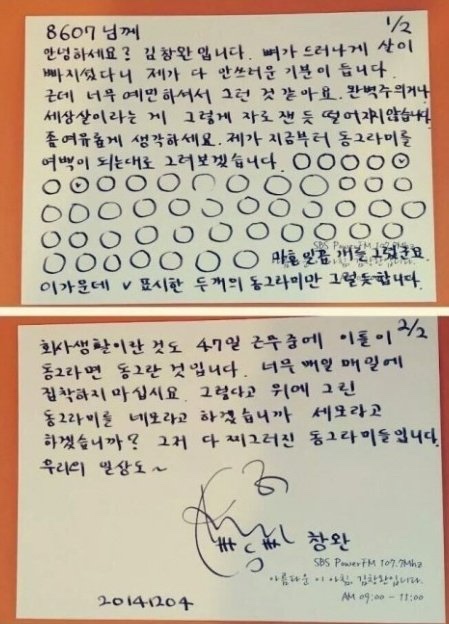 8607님께 1/2
안녕하세요? 김창완입니다. 뼈가 드러나게 살이
빠지셨다니 제가 다 안쓰러운 기분이 듭니다.
근데 너무 예민하셔서 그런 것 같아요. 완벽주의거나
세상살이라는 게 그렇게 자로 잰 듯 떨어지지않습니다.
좀 여유롭게 생각하세요. 제가 지금부터 동그라미를
여백이 되는대로 그려보겠습니다.
SBS PowerFM 107.7Mhz
마흔 일곱 개를 그렸군요.
이 가운데 v 표시한 두 개의 동그라미만 그럴듯합니다.
2/2
회사생활이란 것도 47일 근무 중에 이틀이
동그라면 동그란 것입니다. 너무 매일 매일에
집착하지 마십시요. 그렇다고 위에 그린
동그라미를 네모라고 하겠습니까 세모라고
하겠습니까? 그저 다 찌그러진 동그라미들입니다.
우리의 일상도~
창완
SBS PowerFM 107.7Mhz
아름다운 이 아침, 김창완입니다.
20141204 AM 09:00 - 11:00